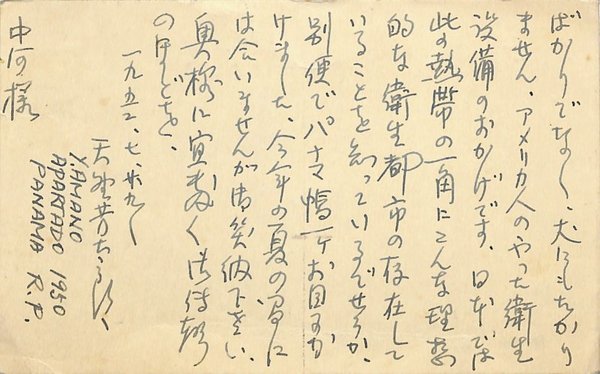 ばかりでなく、犬にもたかり
ません、アメリカ人のやった衛生
設備のおかげです、日本では
此の熱帯の一角にこんな理想
的な衛生都市の存在して
いることを知っているでせうか、
別便でパナマ帽一ヶお目にか
けました、今年の夏の間に
は会いませんが御笑納下さい、
奥様に宜敷く御
の程を、
一九五二、七、廿九、
天野芳太郎
Y.AMANO
APARTADO 1950
PANAMA R.P.
中河様